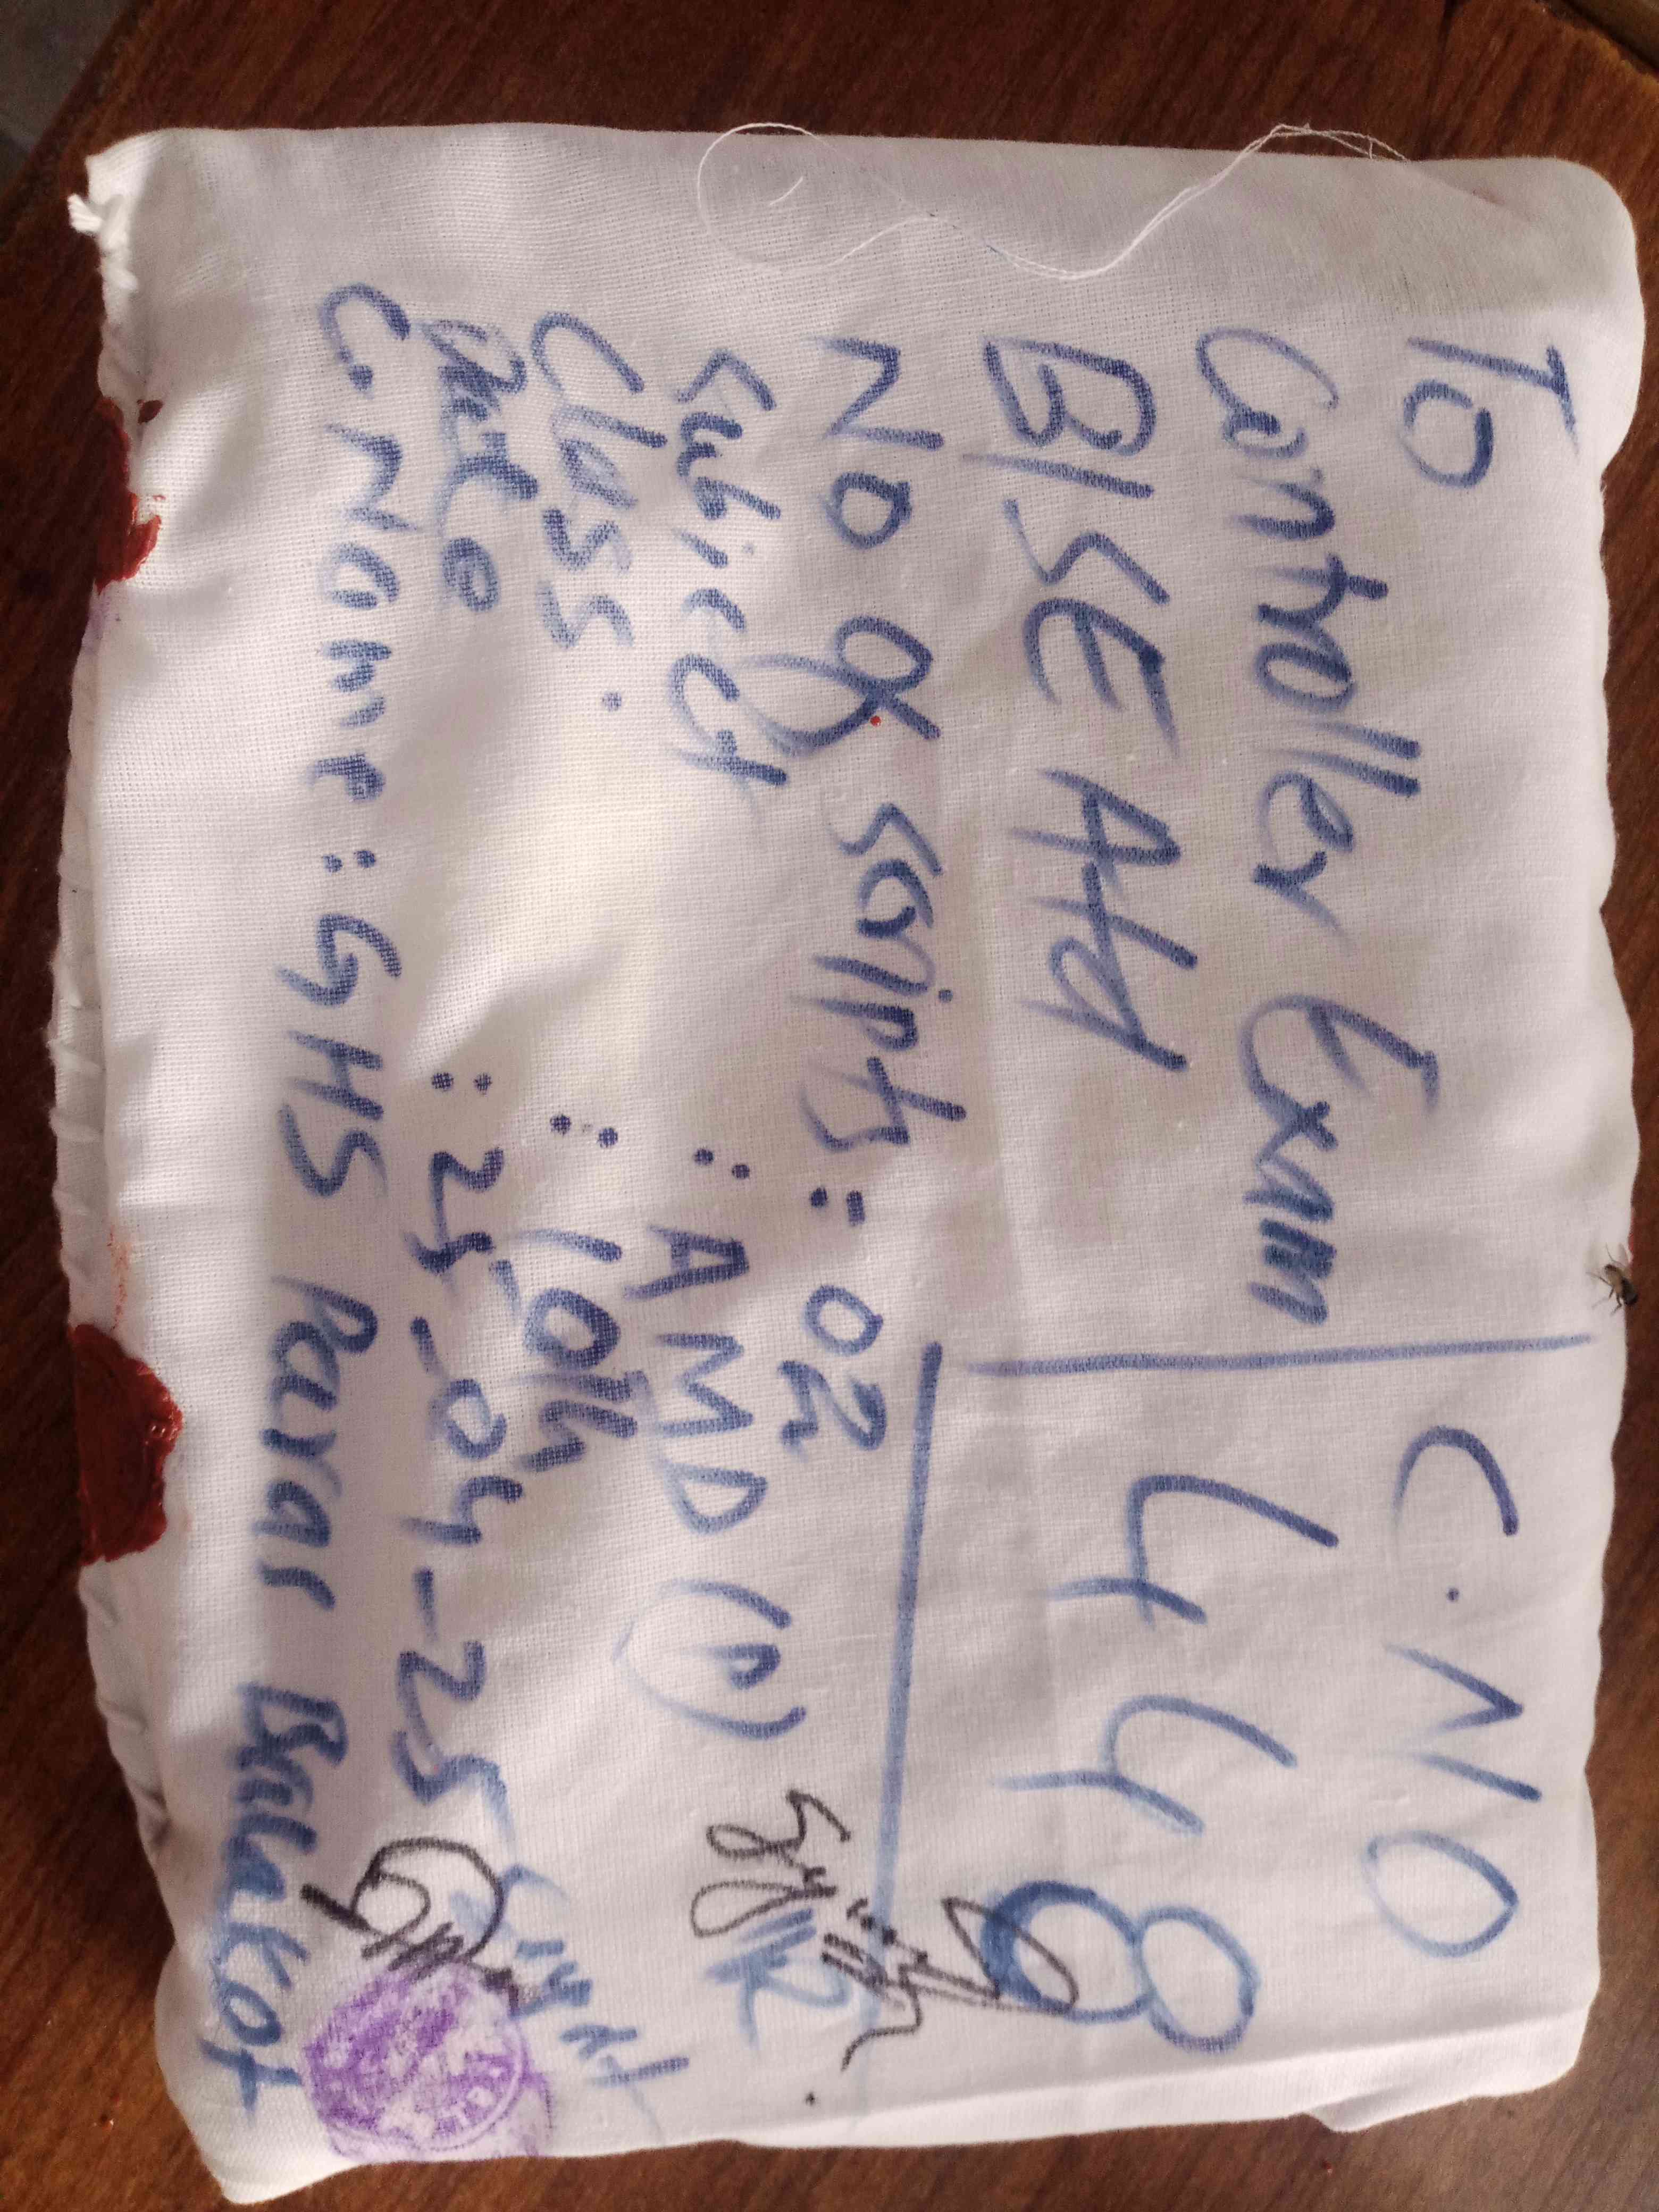 To
Controller Exam
BISE Atd
C.NO
448
No of scripts : 02
Subject : AMD (P)
Class. : 10th
Date : 25-04-25
C.Name : GHS Paras Balakot